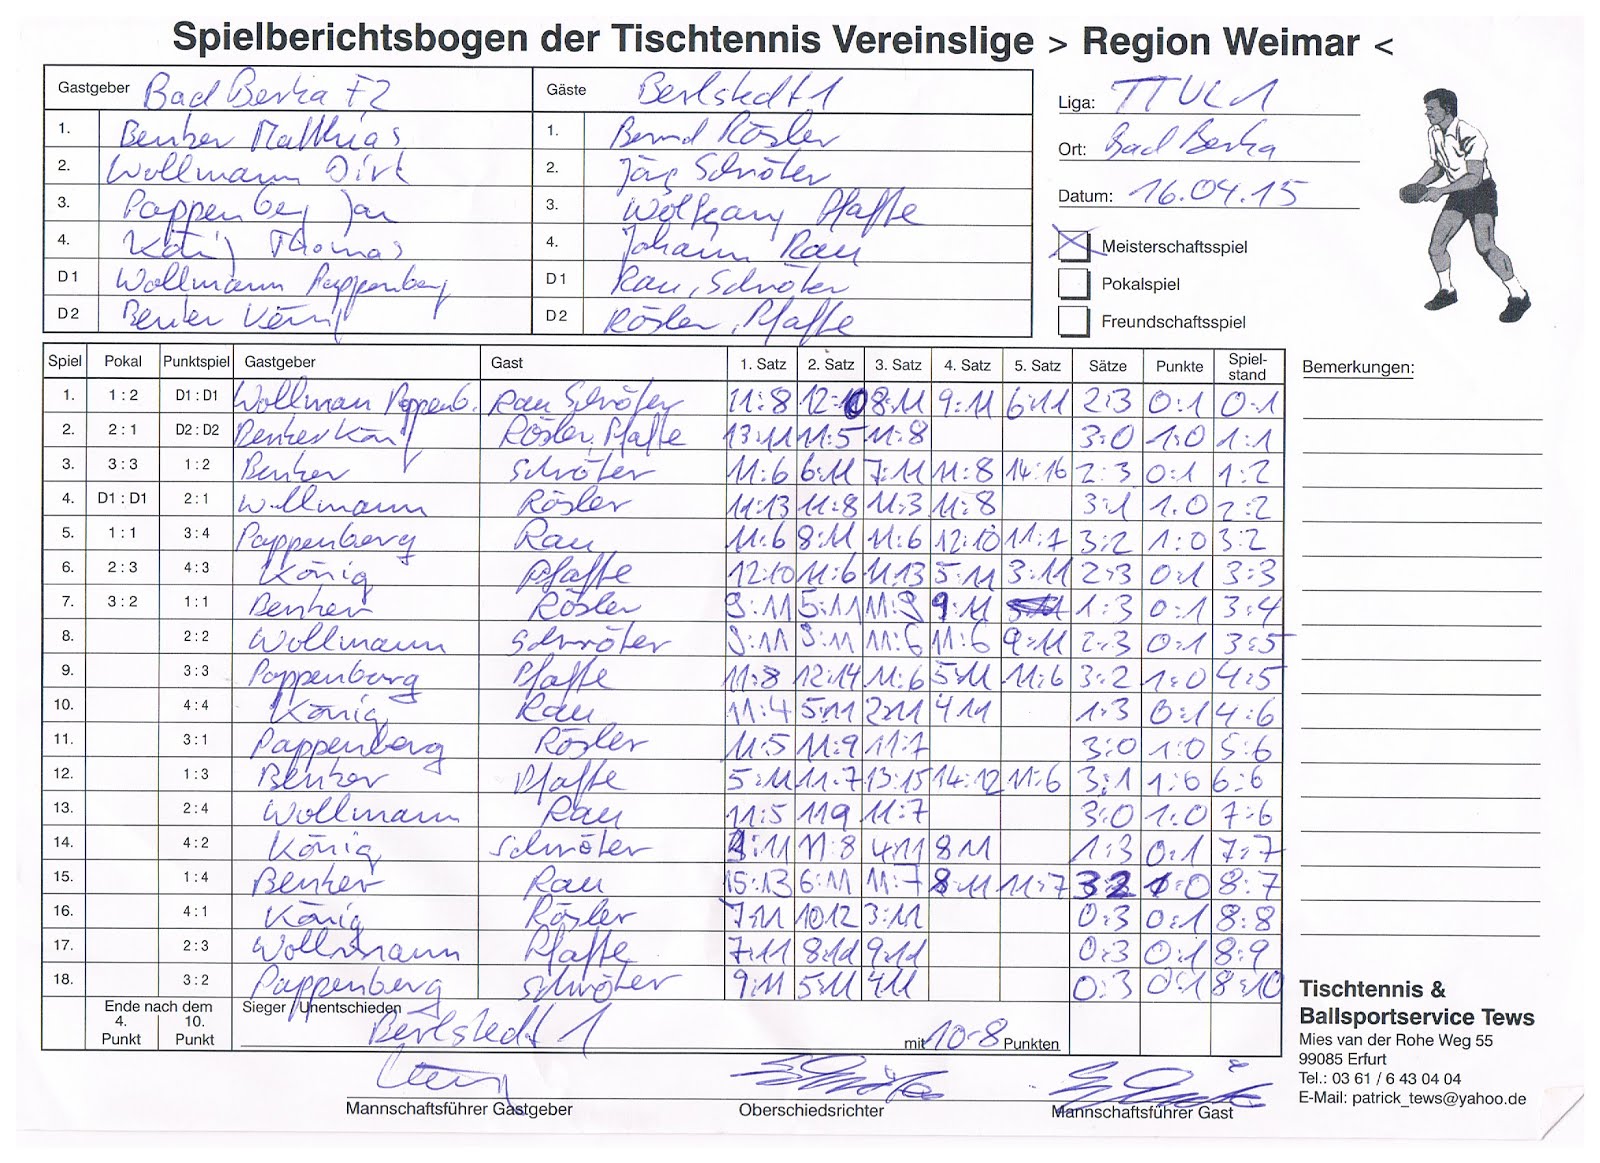 Spielberichtsbogen der Tischtennis Vereinslige > Region Weimar <
Gastgeber Bad Berka F2 Gäste Berlstedt 1
1. Benker Matthias 1. Bernd Rösler
2. Wollmann Dirk 2. Jörg Schröter
3. Pappenberg Jan 3. Wolfgang Pfaffe
4. König Thomas 4. Johann Rau
D1 Wollmann Pappenberg D1 Rau, Schröter
D2 Benker König D2 Rösler, Pfaffe
Liga: TTVL 1
Ort: Bad Berka
Datum: 16.04.15
Meisterschaftsspiel
Pokalspiel
Freundschaftsspiel
Spiel Pokal Punktspiel Gastgeber Gast 1. Satz 2. Satz 3. Satz 4. Satz 5. Satz Sätze Punkte Spiel-stand
Bemerkungen:
1. 1 : 2 D1 : D1 Wollman Pappenb. Rau Schröter 11:8 12:10 8:11 9:11 6:11 2:3 0:1 0:1
2. 2 : 1 D2 : D2 Benker Kön Rösler, Pfaffe 13:11 11:5 11:8 3:0 1:0 1:1
3. 3 : 3 1 : 2 Benker Schröter 11:6 6:11 7:11 11:8 14:16 2:3 0:1 1:2
4. D1 : D1 2 : 1 Wollmann Rösler 11:13 11:8 11:3 11:8 3:1 1:0 2:2
5. 1 : 1 3 : 4 Pappenberg Rau 11:6 8:11 11:6 12:10 11:7 3:2 1:0 3:2
6. 2 : 3 4 : 3 König Pfaffe 12:10 11:6 11:13 5:11 3:11 2:3 0:1 3:3
7. 3 : 2 1 : 1 Benker Rösler 9:11 5:11 11:9 9:11 1:3 0:1 3:4
8. 2 : 2 Wollmann Schröter 9:11 9:11 11:6 11:6 9:11 2:3 0:1 3:5
9. 3 : 3 Pappenberg Pfaffe 11:8 12:14 11:6 5:11 11:6 3:2 1:0 4:5
10. 4 : 4 König Rau 11:4 5:11 2:11 4 11 1:3 0:1 4:6
11. 3 : 1 Pappenberg Rösler 11:5 11:9 11:7 3:0 1:0 5:6
12. 1 : 3 Benker Pfaffe 5:11 11:7 13:15 14:12 11:6 3:1 1:0 6:6
13. 2 : 4 Wollmann Rau 11:5 11 9 11:7 3:0 1:0 7:6
14. 4 : 2 König Schröter 9:11 11:8 4:11 8 11 1:3 0:1 7:7
15. 1 : 4 Benker Rau 15:13 6:11 11:7 8:11 11:7 3:2 1:0 8:7
16. 4 : 1 König Rösler 7:11 10 12 3:11 0:3 0:1 8:8
17. 2 : 3 Wollmann Pfaffe 7:11 8:11 9:11 0:3 0:1 8:9
18. 3 : 2 Pappenberg Schröter 9:11 5:11 4 11 0:3 0:1 8:10
Ende nach dem
4. Punkt 10. Punkt
Sieger / Unentschieden
Berlstedt 1 mit 10-8 Punkten
Mannschaftsführer Gastgeber Oberschiedsrichter Mannschaftsführer Gast
Tischtennis &
Ballsportservice Tews
Mies van der Rohe Weg 55
99085 Erfurt
Tel.: 03 61 / 6 43 04 04
E-Mail: patrick_tews@yahoo.de